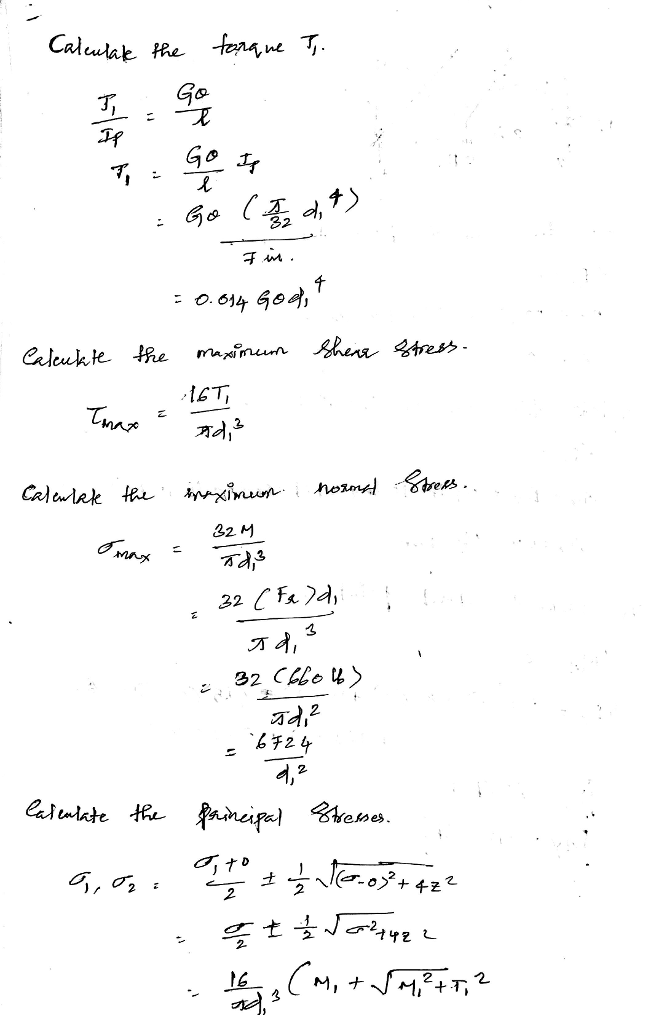 Calculate the torque T₁.
T₁/Ip = Gθ/l
T₁ = Gθ/l Ip
= Gθ (π/32 d₁⁴) / 7 in.
= 0.014 Gθd₁⁴
Calculate the maximum Shear Stress.
τmax = 16T₁/πd₁³
Calculate the maximum normal Stress.
σmax = 32M/πd₁³
= 32 (Fa)d₁/πd₁³
= 32 (660 lb)/πd₁²
= 6724/d₁²
Calculate the principal Stresses.
σ₁, σ₂ = σ₁+0/2 ± 1/2 √(σ-0)²+4τ²
= σ/2 ± 1/2 √σ²+4τ²
= 16/πd₁³ (M₁ + √M₁²+T₁²